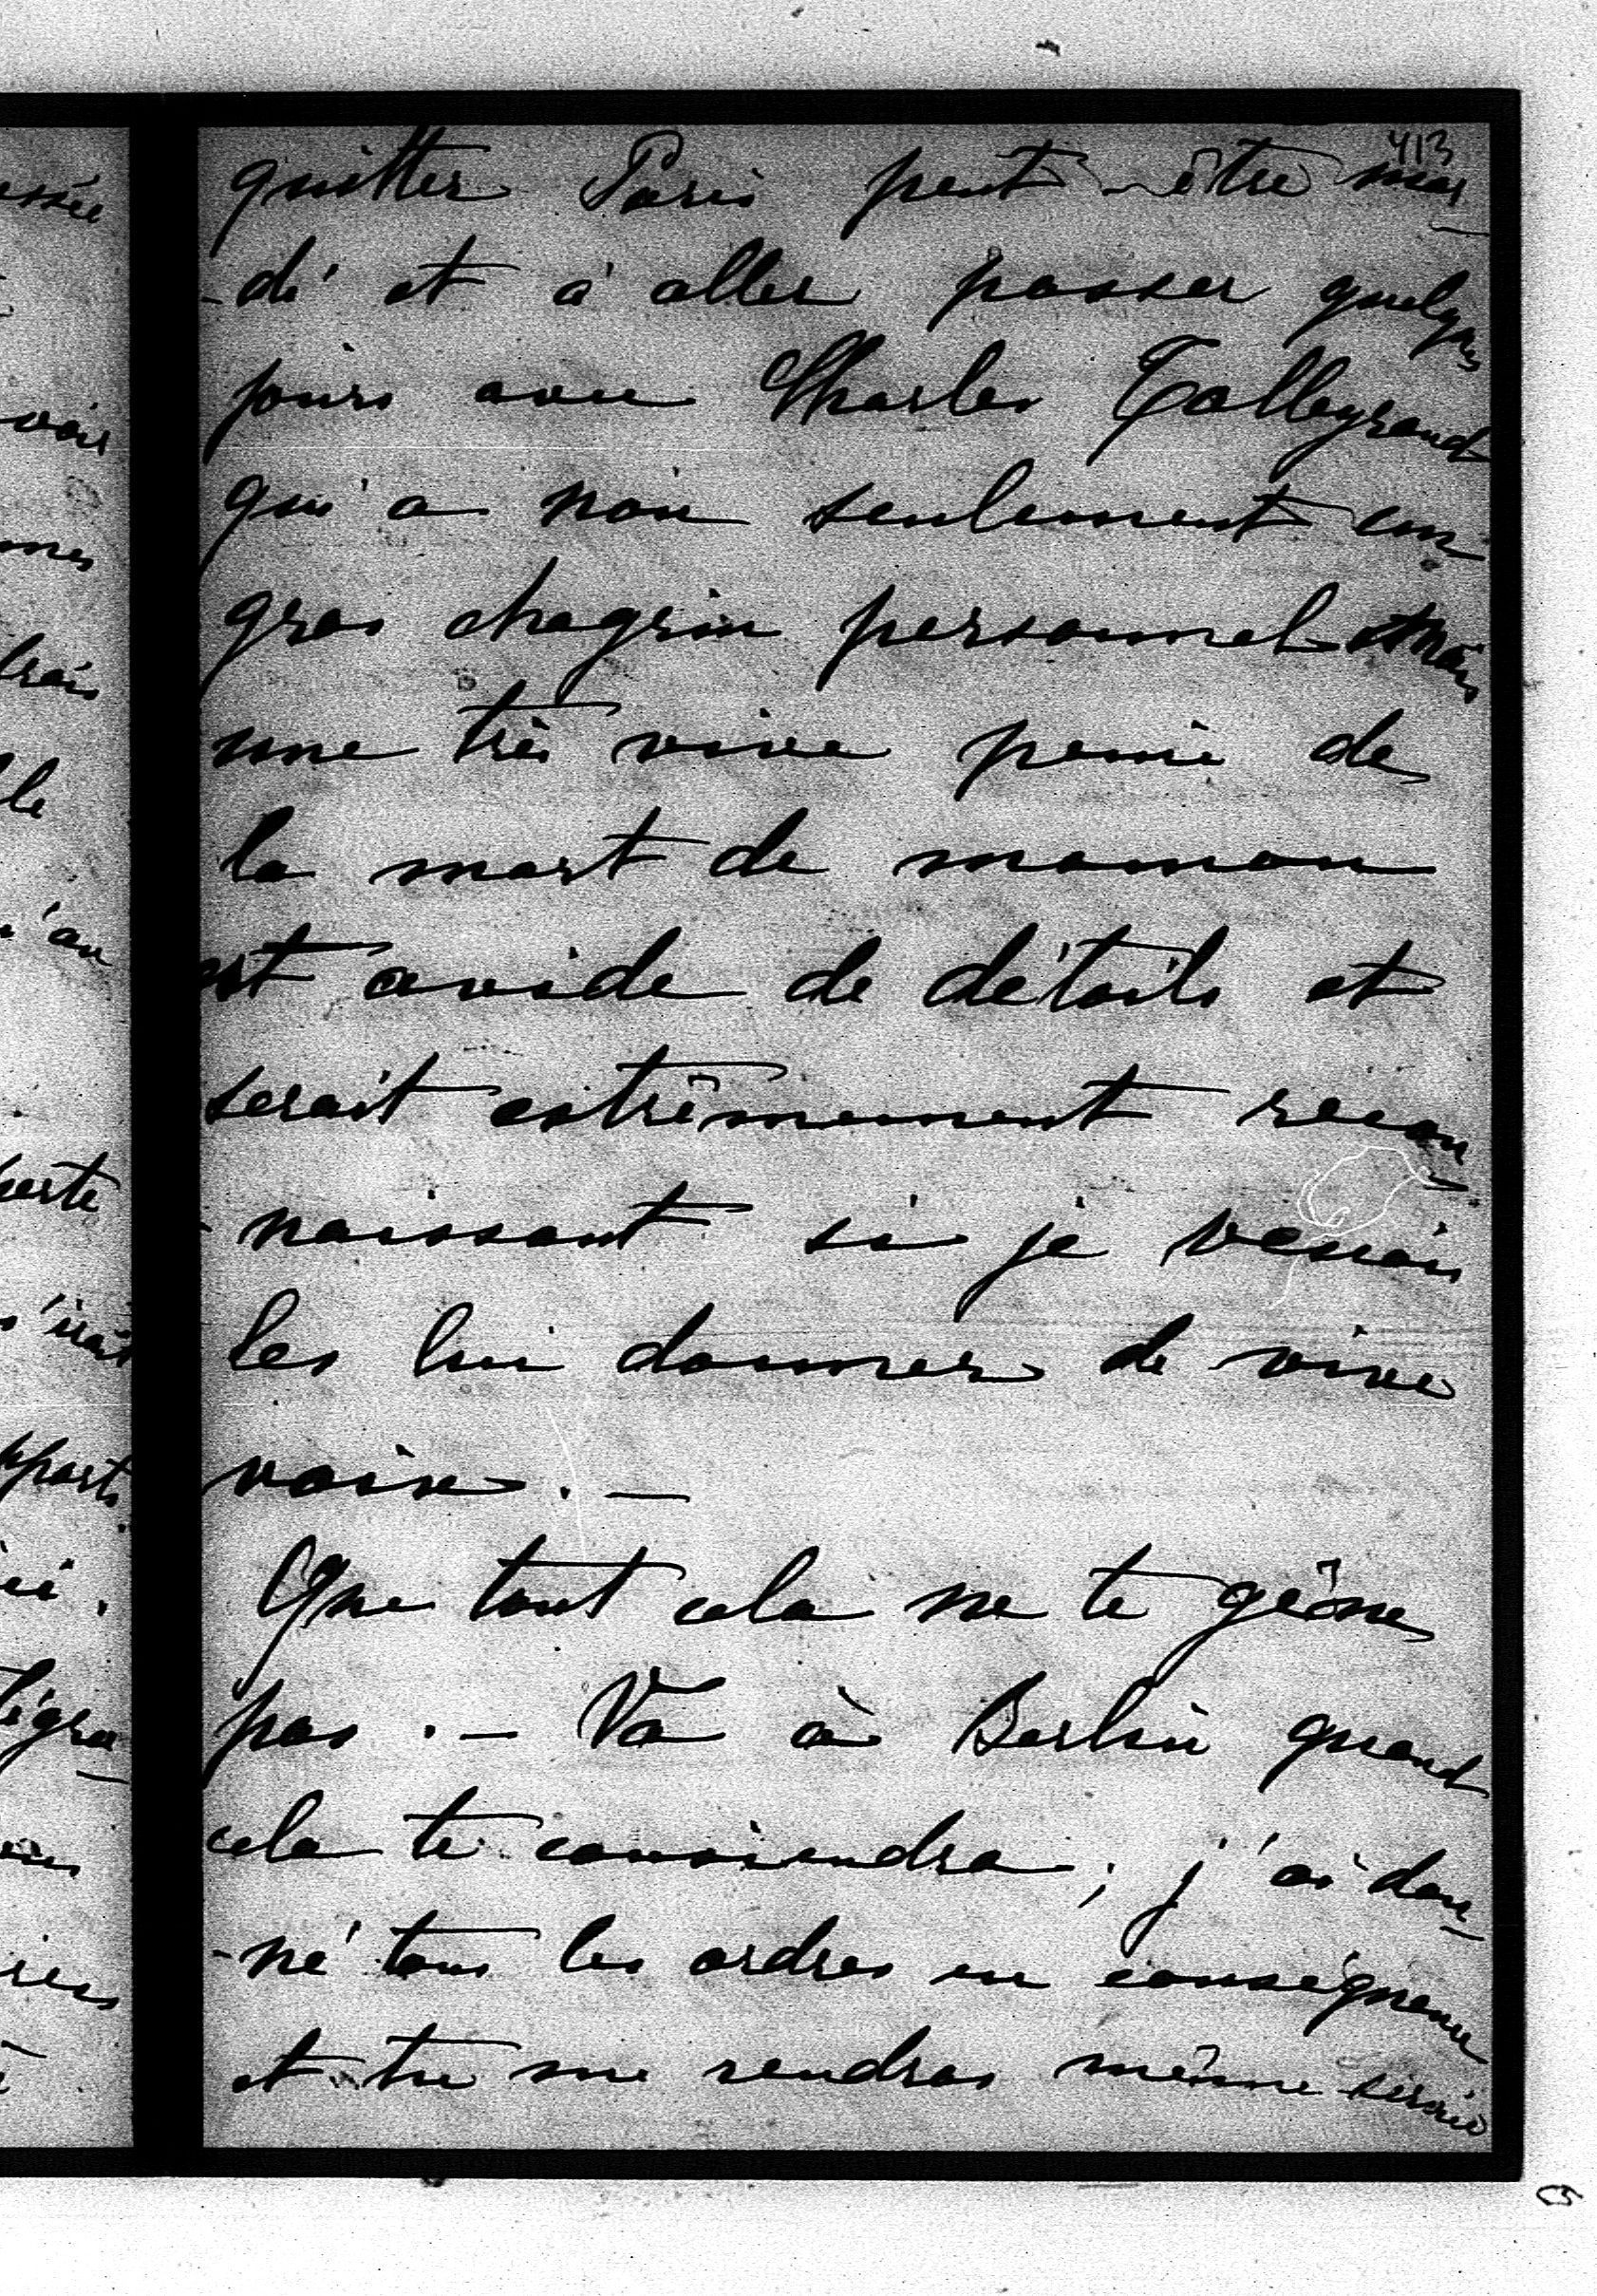 413
quitter Paris peut-être mar
-di et à aller passer quelques
jours avec Charles Talleyrand
qui a non seulement un
gros chagrin personnel mais
une très vive peine de
la mort de maman
est avide de détails et
serait extrêmement recon-
-naissant si je venais
les lui donner de vive
voix. —
Que tout cela ne te gêne
pas. — Va à Berlin quand
cela te conviendra; j'ai don-
-né tous les ordres en conséquence
et tu me rendras même service